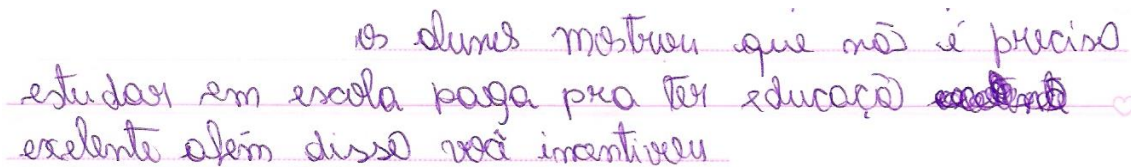 os alunos mostrou que não é preciso
estudar em escola paga pra ter educaçã
exelente além disso você incentivou